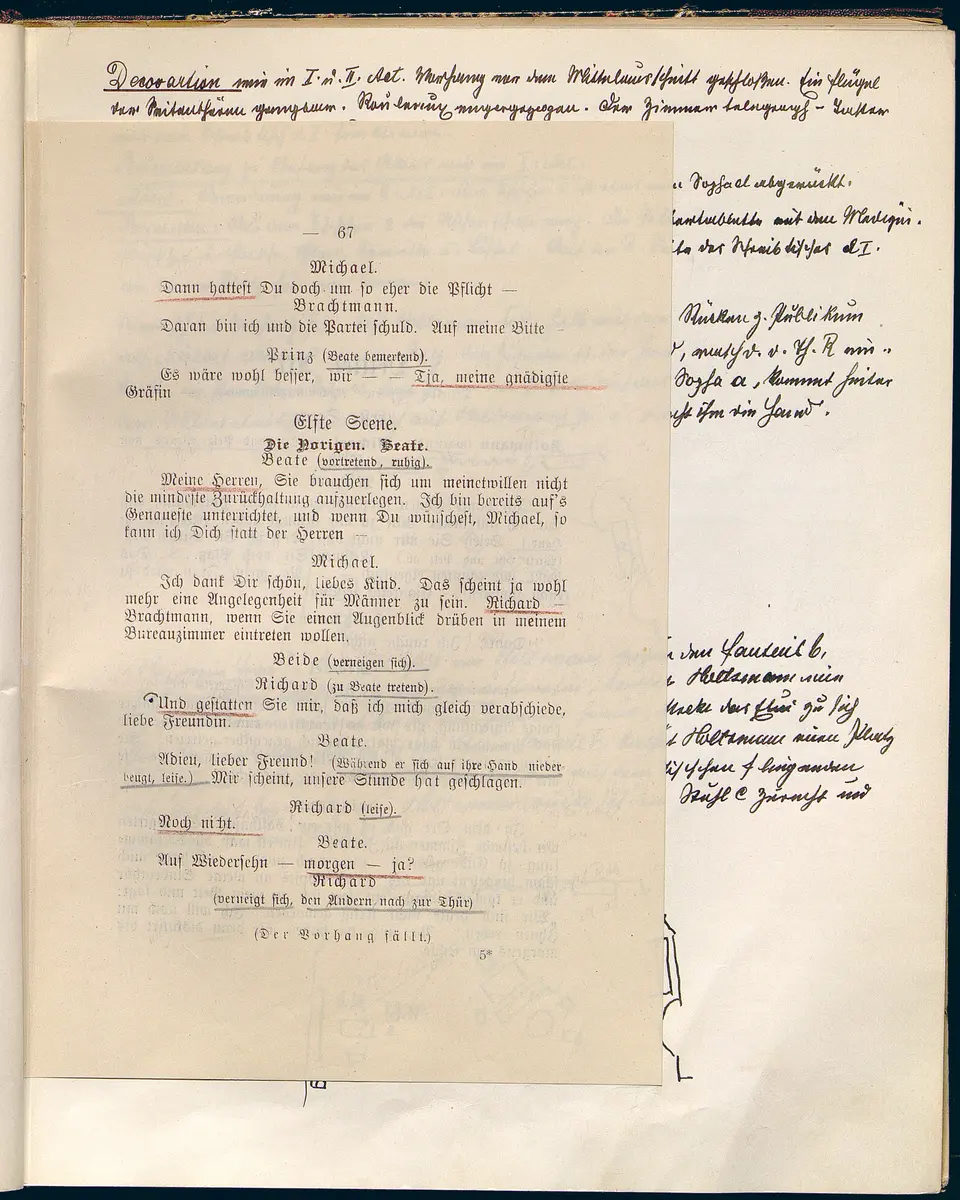 Decoration wie im I. u. II. Act. Vorhang vor dem Mittelausschnitt geschloßen. Ein Flügel
der Seitenthüren gangbar. Rouleaux empergezogen. Der Zimmertelegraph-Taster
Sopha a abgerückt.
mit dem Medizin.
des Schreibtisches d I.
Rücken z. Publikum
rasch d. d. Th. R ein-
Sopha a, kommt hinter
ihm die Hand.
den Fauteuil b,
Holtzmann ein
steckt das Etui zu sich
Holtzmann einen Platz
f liegenden
Stuhl c zurecht und
— 67
Michael.
Dann hattest Du doch um so eher die Pflicht —
Brachtmann.
Daran bin ich und die Partei schuld. Auf meine Bitte
Prinz (Beate bemerkend).
Es wäre wohl besser, wir — — Tja, meine gnädigste
Gräfin —
Elfte Scene.
Die Vorigen. Beate.
Beate (vortretend, ruhig).
Meine Herren, Sie brauchen sich um meinetwillen nicht
die mindeste Zurückhaltung aufzuerlegen. Ich bin bereits auf's
Genaueste unterrichtet, und wenn Du wünschest, Michael, so
kann ich Dich statt der Herren —
Michael.
Ich dank Dir schön, liebes Kind. Das scheint ja wohl
mehr eine Angelegenheit für Männer zu sein. Richard —
Brachtmann, wenn Sie einen Augenblick drüben in meinem
Bureauzimmer eintreten wollen.
Beide (verneigen sich).
Richard (zu Beate tretend).
Und gestatten Sie mir, daß ich mich gleich verabschiede,
liebe Freundin.
Beate.
Adieu, lieber Freund! (Während er sich auf ihre Hand nieder-
beugt, leise.) Mir scheint, unsere Stunde hat geschlagen.
Richard (leise).
Noch nicht.
Beate.
Auf Wiedersehn — morgen — ja?
Richard
(verneigt sich, den Andern nach zur Thür)
(Der Vorhang fällt.)
5*